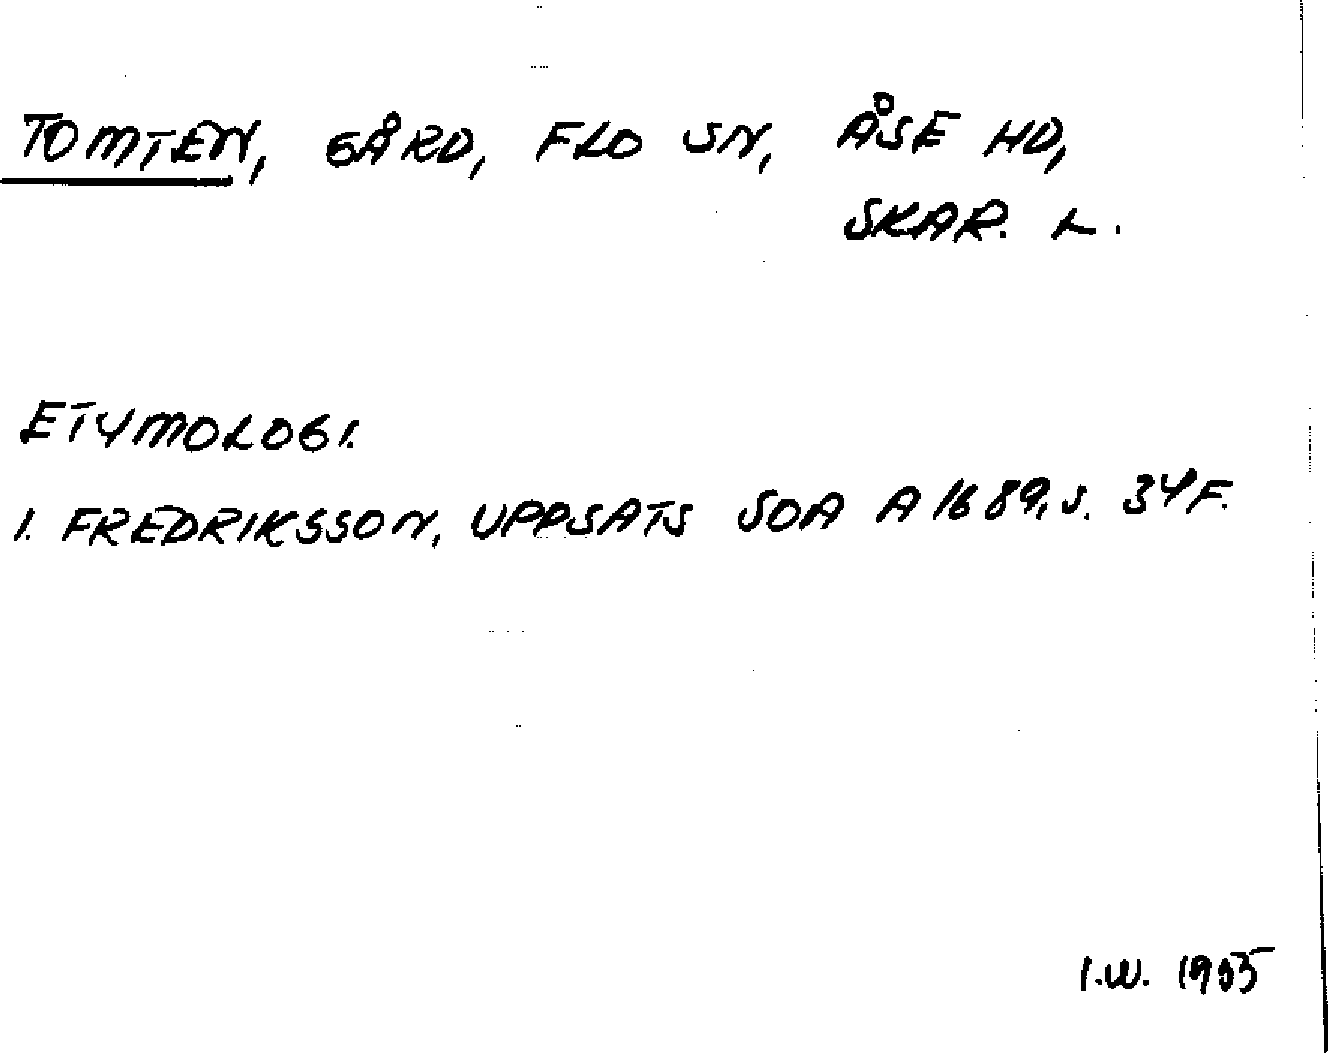 TOMTEN, GÅRD, FLO SN, ÅSE HD,
SKAR. L.
ETYMOLOGI.
I. FREDRIKSSON, UPPSATS SOA A 1689, S. 34 F.
I.W. 1985